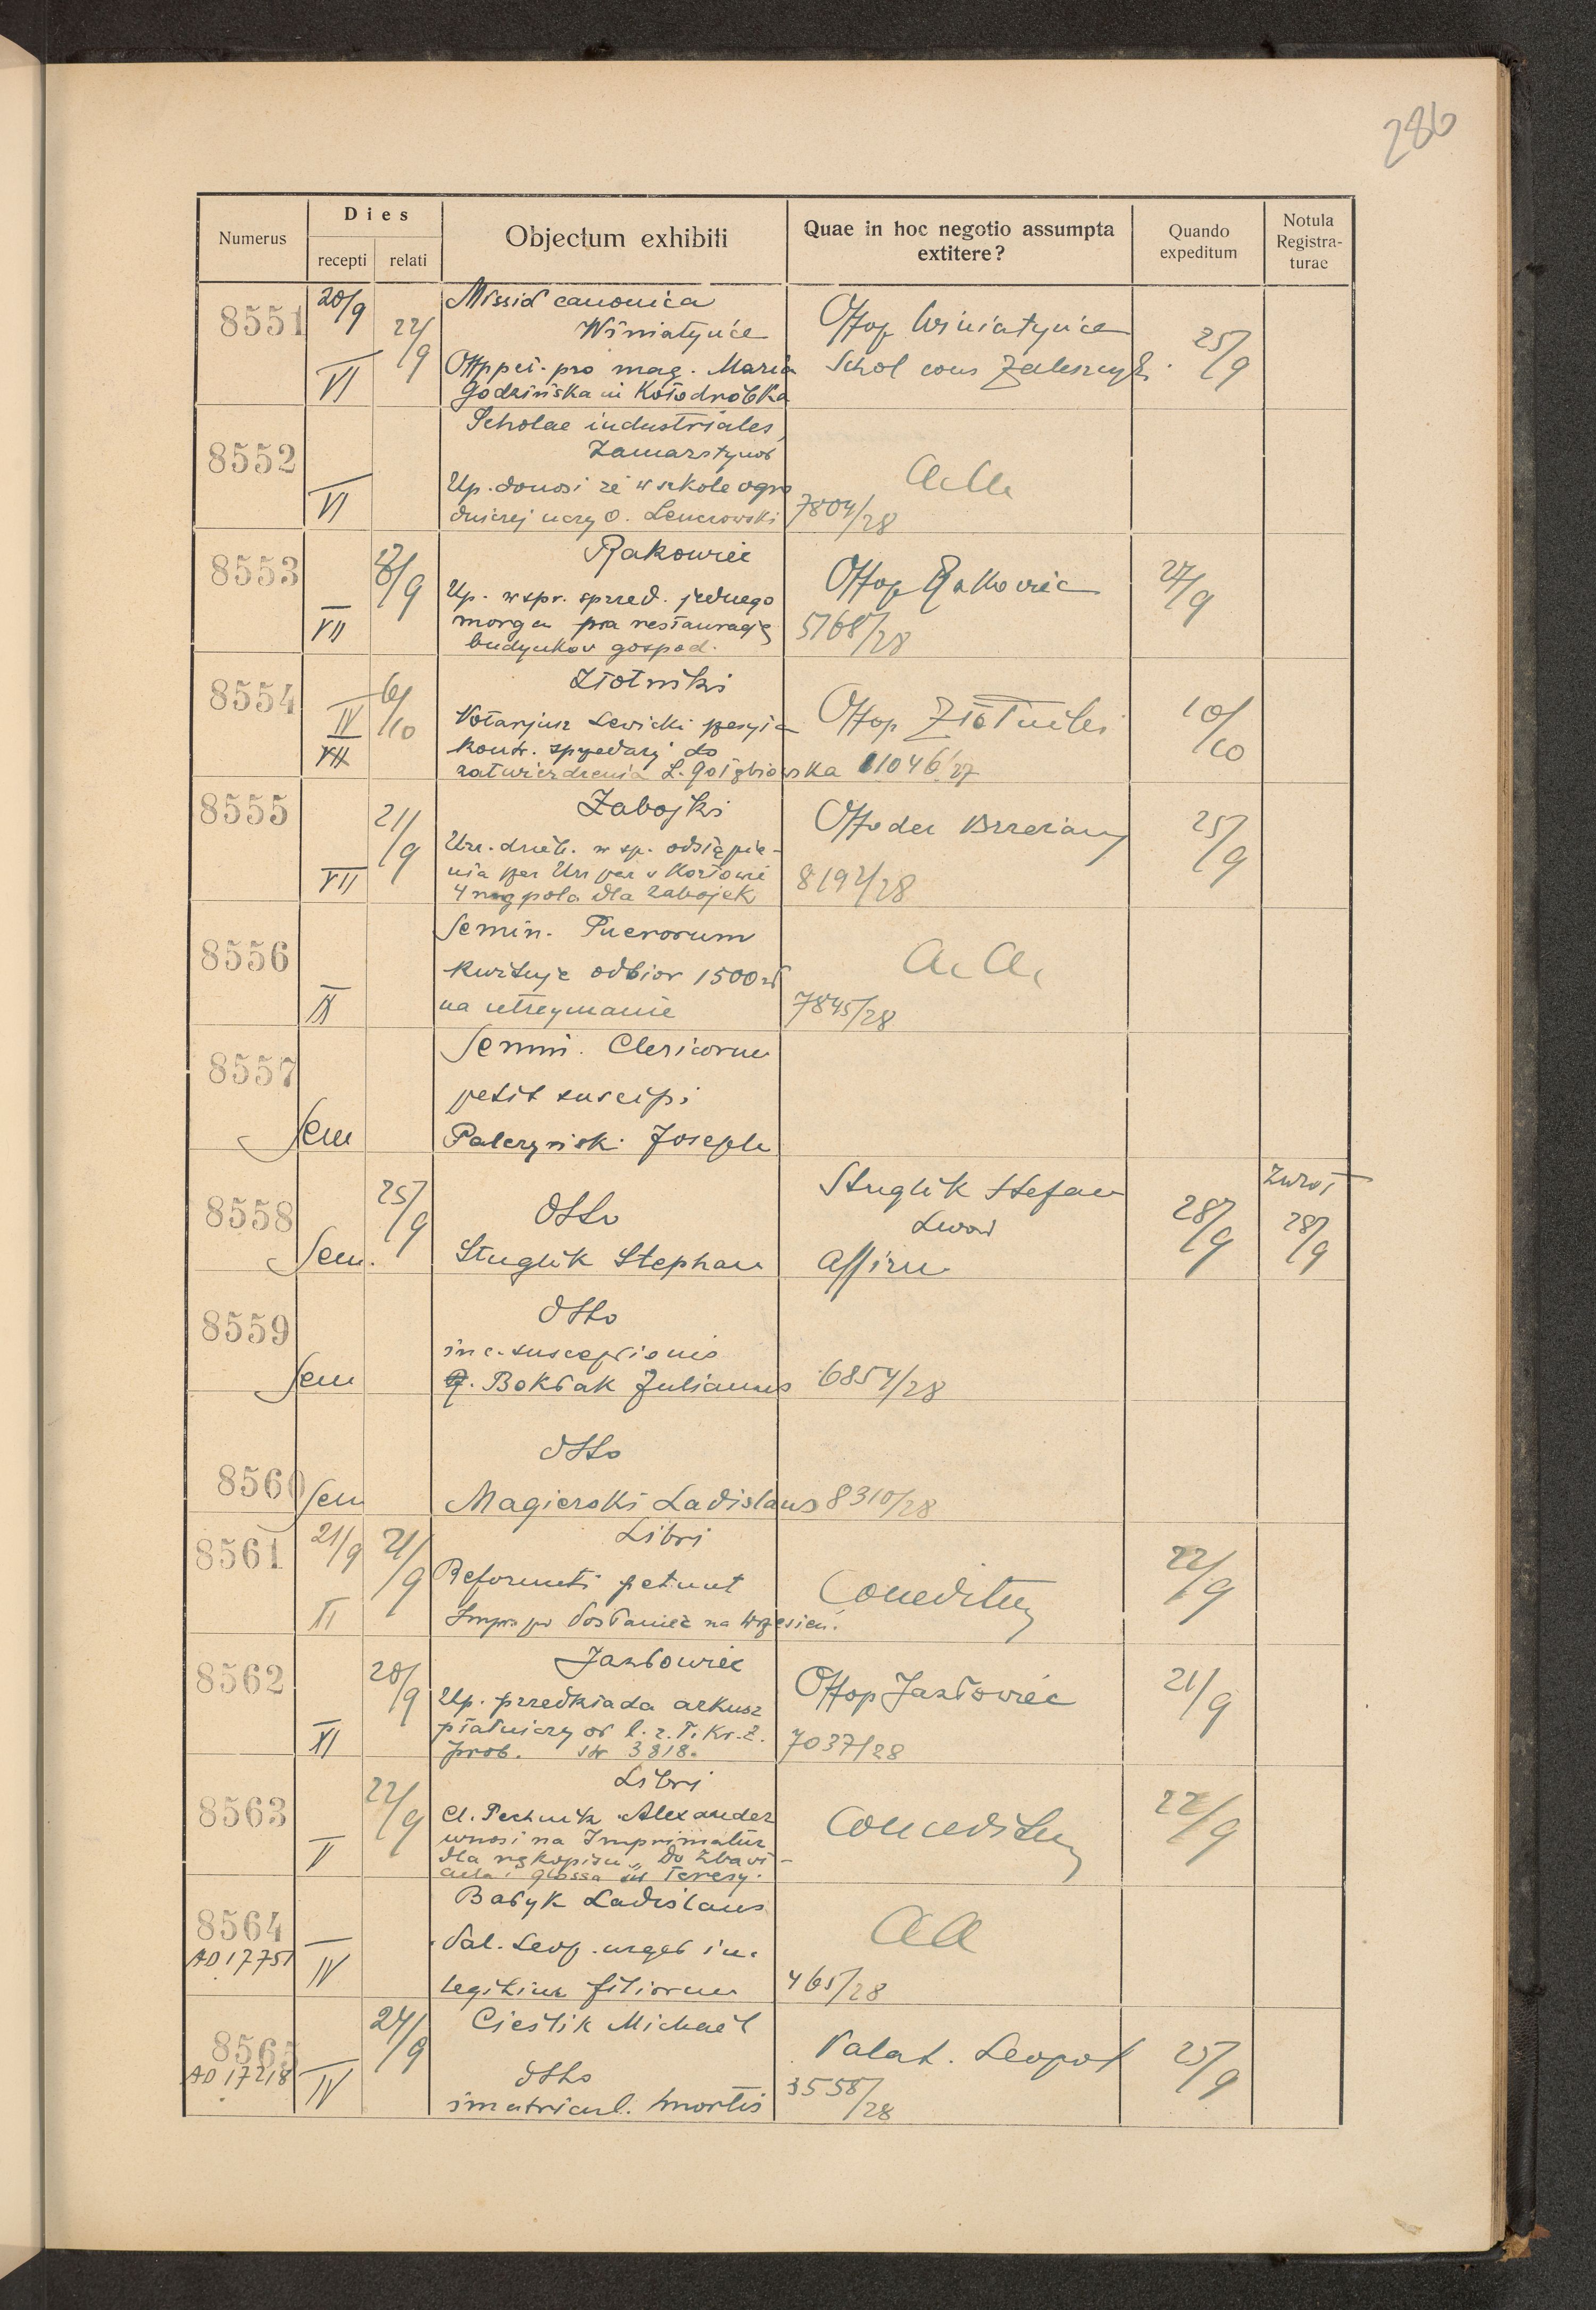 286
Numerus
Dies
recepti relati
Objectum exhibiti
Quae in hoc negotio assumpta
extitere?
Quando
expeditum
Notula
Registra-
turae
8551
20/9
22/9
VI
Missio canonica
Winiatyńce
Offppci. pro mag. Maria
Godzińska in Kołodróbka
Offop Winiatyńce
Schol cons Zaleszczyk.
25/9
8552
VI
Scholae industriales
Zamarstynów
Up. donosi że w szkole ogro
dniczej uczy O. Lenczowski
a.a.
7804/28
8553
VII
Rakowiec
Up. w spr. sprzed. jednego
morga na restaurację
budynków gospod.
Offop Rakowiec
5768/28
27/9
8554
6/10
IV
VII
Złotniki
Notarjusz Lewicki
kontr. sprzedaży do
zatwierdzenia L. Gołębiowska
Offop Złotniki
11046/27
10/10
8555
21/9
VII
Zabojki
Urz. dziek. w sp. odstąpie-
nia per Urz par w Kozłowie
4 mg pola dla Zabojek
Offo dec Brzeżany
8192/28
25/9
8556
IX
Semin. Puerorum
kwituje odbiór 1500 zł
na utrzymanie
a.a.
7845/28
8557
Sem
Semin. Clericorum
petit suscipi
Palczyński Joseph
8558
25/9
Sem.
dtto
Stuglik Stephan
Stuglik Stefan
Lwów
Affirm.
28/9
Zwrot
28/9
8559
Sem
dtto
in c. susceptionis
Bokłak Julianus
6854/28
8560
Sem
dtto
Magierski Ladislaus
8310/28
8561
21/9
21/9
II
Libri
Reformati petunt
Impr. pr Posłaniec na Wrzesień.
Conceditur
22/9
8562
20/9
XI
Jazłowiec
Up. przedkłada arkusz
płatniczy
prob. str 3818.
Offop Jazłowiec
7037/28
21/9
8563
22/9
V
Libri
Cl. Pechnik Alexander
wnosi na Imprimatur
dla rękopisu „Do Zbawi-
ciela i Glossa św Teresy.
Conceditur
22/9
8564
AD 17751
IV
Batyk Ladislaus
Pal. Leop. urget in c.
legitim filiorum
aa
465/28
8565
AD 17218
24/9
IV
Cieślik Michael
dtto
immatricul. mortis
Palat. Leopol
3558/28
25/9